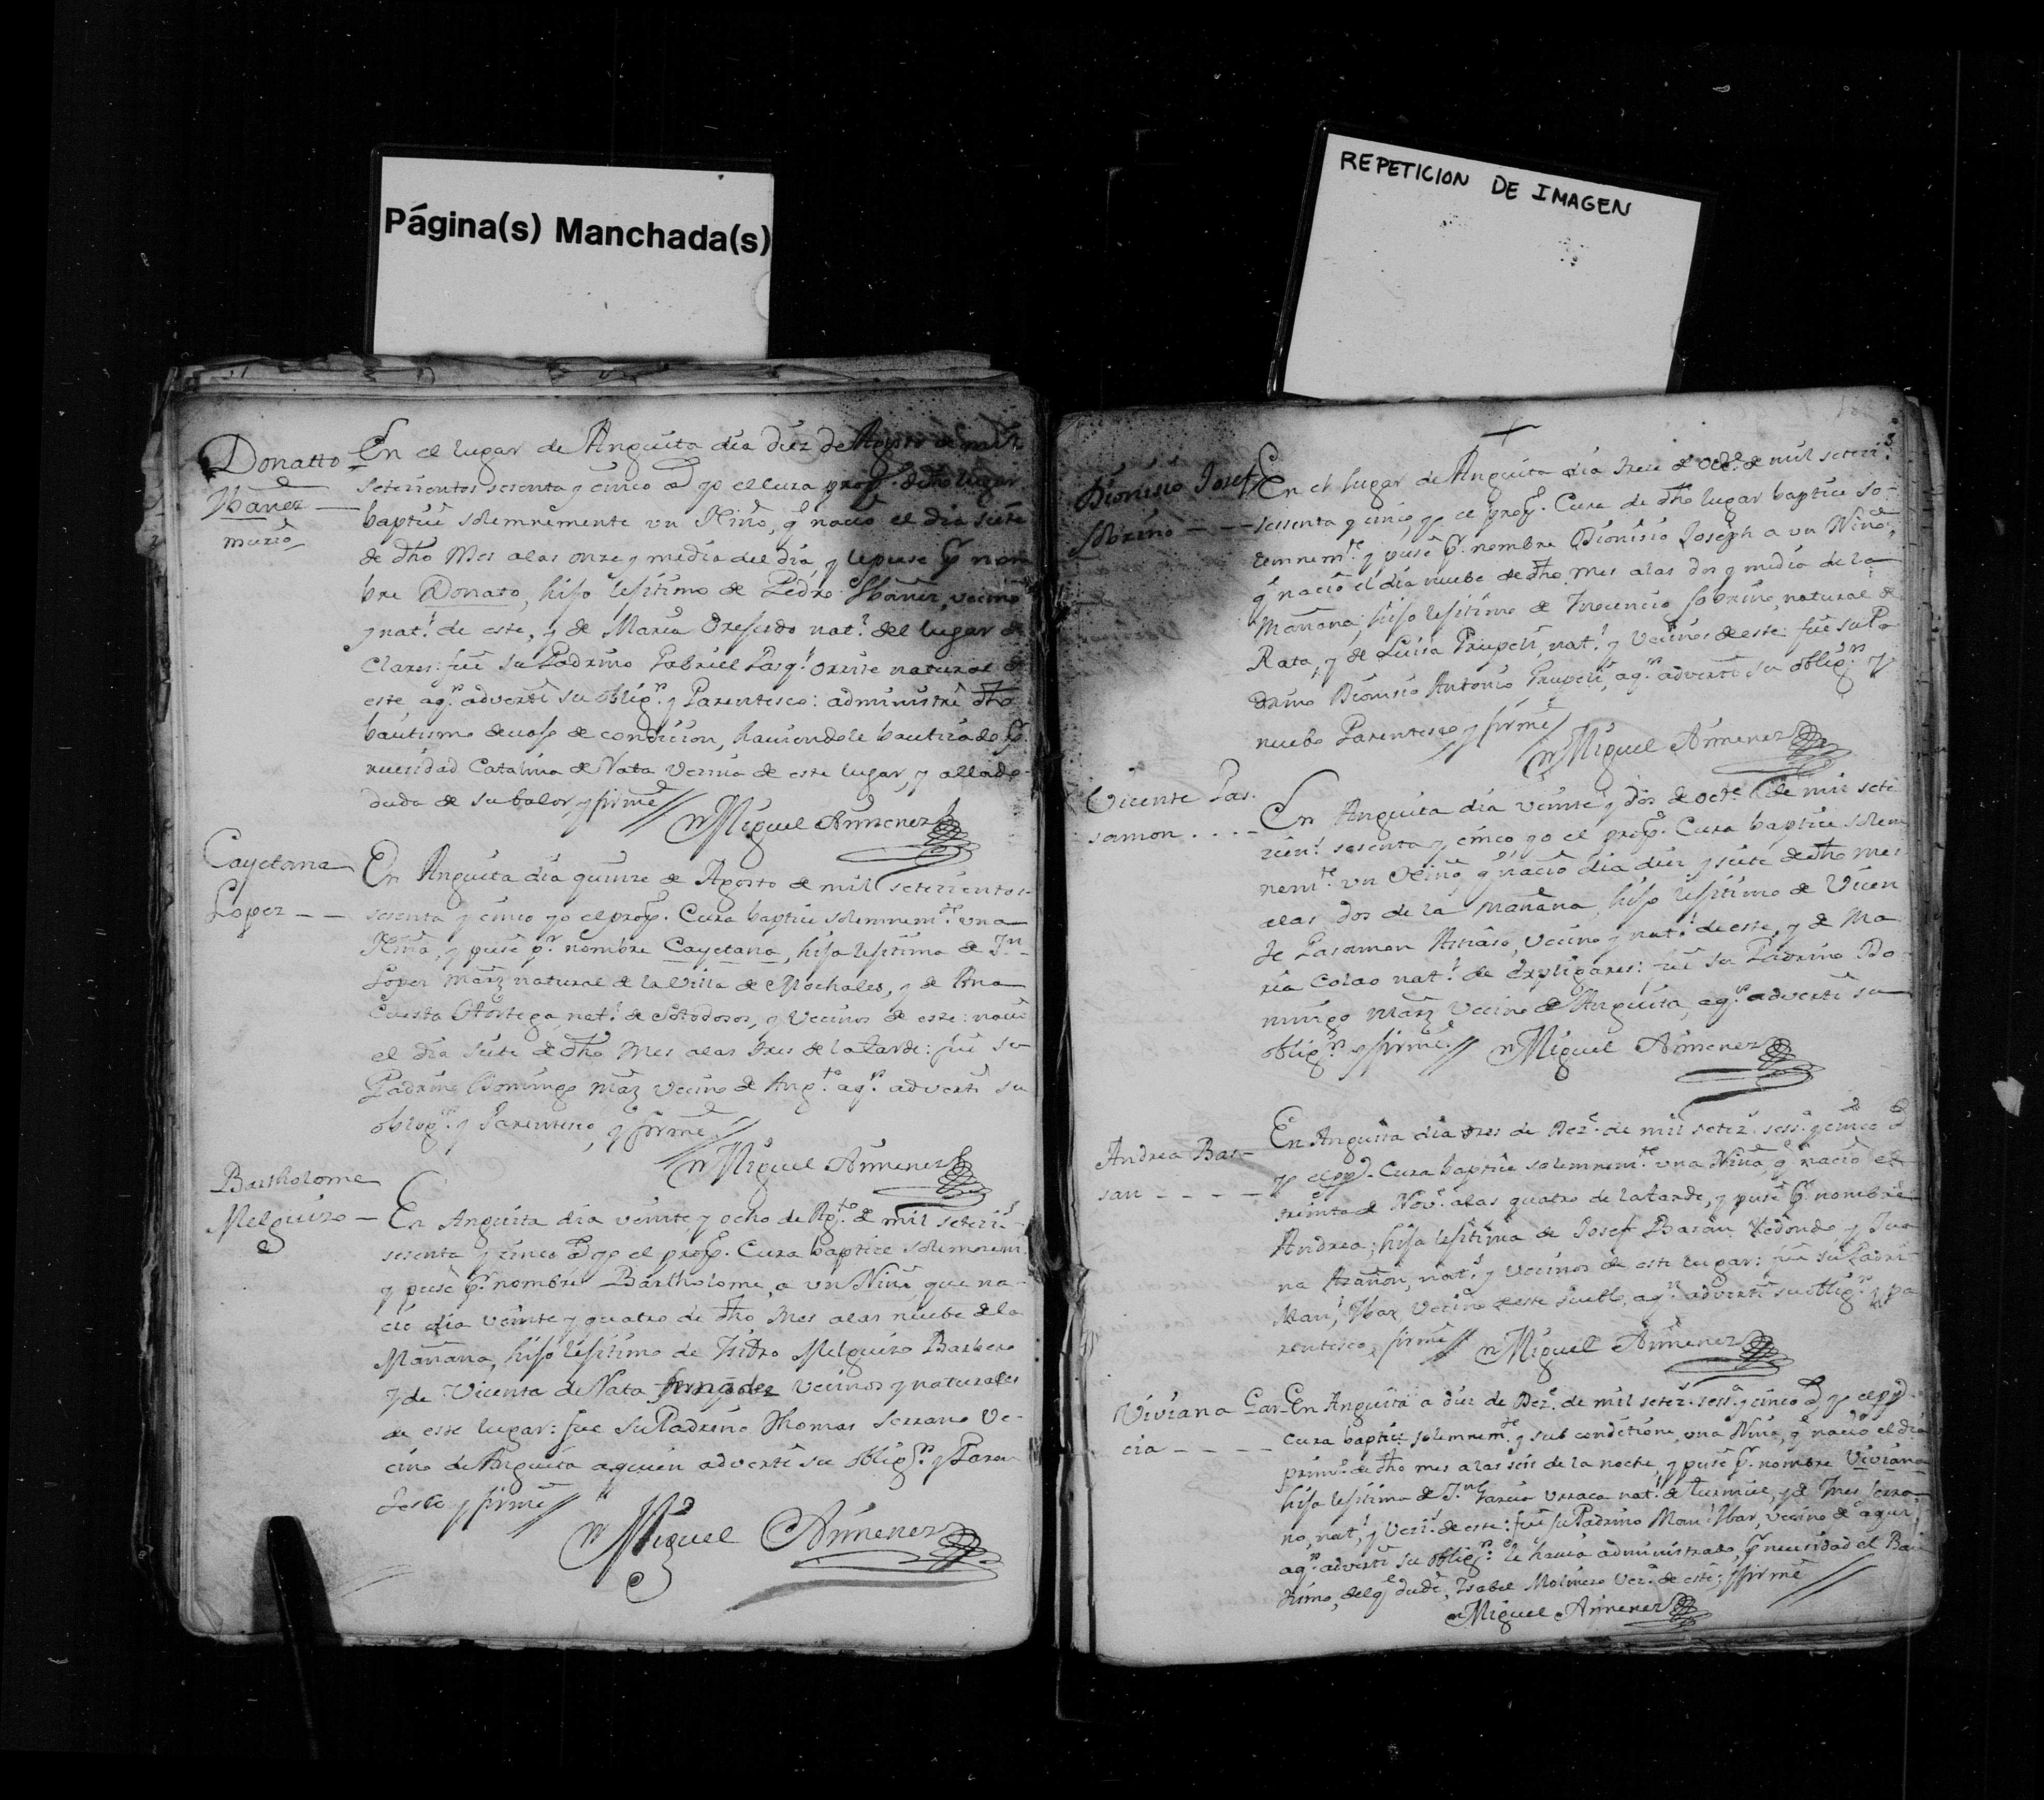 Página(s) Manchada(s)
REPETICION DE IMAGEN
Donatto
Ybañez
murio
En el lugar de Anguita dia diez de Agosto de mil
setezientos sesenta y cinco a. yo el cura prop.º de dho lugar
baptize solemnemente un Niño, q̃ nacio el dia siete
de dho Mes a las onze y media del dia, y le puse pr nom
bre Donato, hijo lejitimo de Pedro Ybañez, vecino
y nat.l de este, y de Maria nat.l del lugar de
Clares: fue su Padrino Gabriel natural de
este, aq.n adverti su oblig.n y Parentesco: administré dho
bautismo de condicion, haviendole bautizado pr
necesidad Catalina de Nata vecina de este lugar, y
duda de su balor, y firmé //
Miguel Ximenez
Cayetana
Lopez - -
En Anguita dia quinze de Agosto de mil setezientos
sesenta y cinco yo el prop.º Cura baptize solemnem.te una
Niña, y puse p.r nombre Cayetana, hija lejitima de J.n
Lopez Mrñz natural de la Villa de Mochales, y de Ana
Cuesta Ortega, nat.l de Sotodosos, y Vecinos de este: nació
el dia siete de dho Mes a las tres de la tarde: fue su
Padrino Domingo Mrñz vecino de Ang.ta aq.n adverti su
oblig.n y Parentesco, y firmé //
Miguel Ximenez
Bartholome
Melguizo -
En Anguita dia veinte y ocho de Ag.to de mil setezi.s
sesenta y cinco a. yo el prop.º Cura baptize solemnem.te
y puse p.r nombre Bartholome, a un Niño, que na-
cio dia veinte y quatro de dho Mes a las nuebe de la
Mañana, hijo lejitimo de Ysidro Melguizo Barbero
y de Vicenta de Nata vecinos y naturales
de este lugar: fue su Padrino Thomas Serrano Ve-
cino de Anguita aquien adverti su oblig.n y Paren
tesco y firmé //
Miguel Ximenez
Dionisio Josef
Sobrino - - -
En el lugar de Anguita dia treze de Oct.e de mil setezi.s
sessenta y cinco, yo el prop.º Cura de dho lugar baptize so-
lemnem.te y puse p.r nombre Dionisio Joseph a un Niño,
q̃ nacio el dia nuebe de dho mes a las dos y media de la
Mañana, hijo lejitimo de Inocencio Sobrino, natural de
Rata, y de Luisa nat.l y Vecinos de este: fue su Pa
drino Dionisio Antonio aq.n adverti su oblig.n y
nuebo Parentesco y firmé //
Miguel Ximenez
Vicente Las
samon . . . -
En Anguita dia veinte y dos de oct.e de mil sete
zien.s sesenta y cinco yo el prop.º Cura baptize solem
nem.te un Niño, q̃ nacio dia diez y siete de dho Mes
a las dos de la mañana, hijo lejitimo de Vicen
te Lasamon vecino y nat.l de este, y de Ma
ria Colao nat.l de fue su Padrino Do-
mingo Mrñz Vecino de Anguita, aq.n adverti su
oblig.n y firmé // Miguel Ximenez
Andrea Bas-
san - - - -
En Anguita dia tres de Dez.e de mil setez.s sess.ta y cinco a.
yo el pp.º Cura baptize solemnem.te una Niña, q̃ nacio el
treinta de Nov.e a las quatro de la tarde, y puse p.r nombre
Andrea, hija lejitima de Josef Basan Redondo y Jua
na nat.s y Vecinos de este lugar: fue su Padri
Man.l Ybar, Vecino de este Pueblo, aq.n adverti su oblig.n y pa
rentesco, firmé // Miguel Ximenez
Viviana Gar-
cia - - - -
En Anguita a diez de Dez.e de mil setez.s sess.ta y cinco a. yo el pp.º
Cura baptize solemnem.te y sub conditione, una Niña, q̃ nacio el dia
prim.º de dho mes a las seis de la noche, y puse p.r nombre Viviana
hija lejitima de J.n Garcia Urraca nat.l de y de Ines Serra
no, nat.l y Vezi.s de este: fue su Padrino Man.l Ybar, vecino de aqui
aq.n adverti su oblig.n le havia administrado, p.r necesidad el Bau
tismo, del q̃ dudé, Ysabel Molinero Vez.a de este; y firmé //
Miguel Ximenez